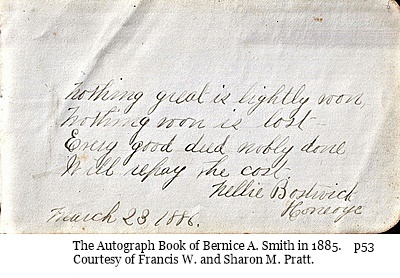 Nothing great is lightly won,
Nothing won is lost –
Every good deed nobly done
Will repay the cost.
Nellie Bostwick
Honeoye
March 23 1886.
The Autograph Book of Bernice A. Smith in 1885. p53
Courtesy of Francis W. and Sharon M. Pratt.